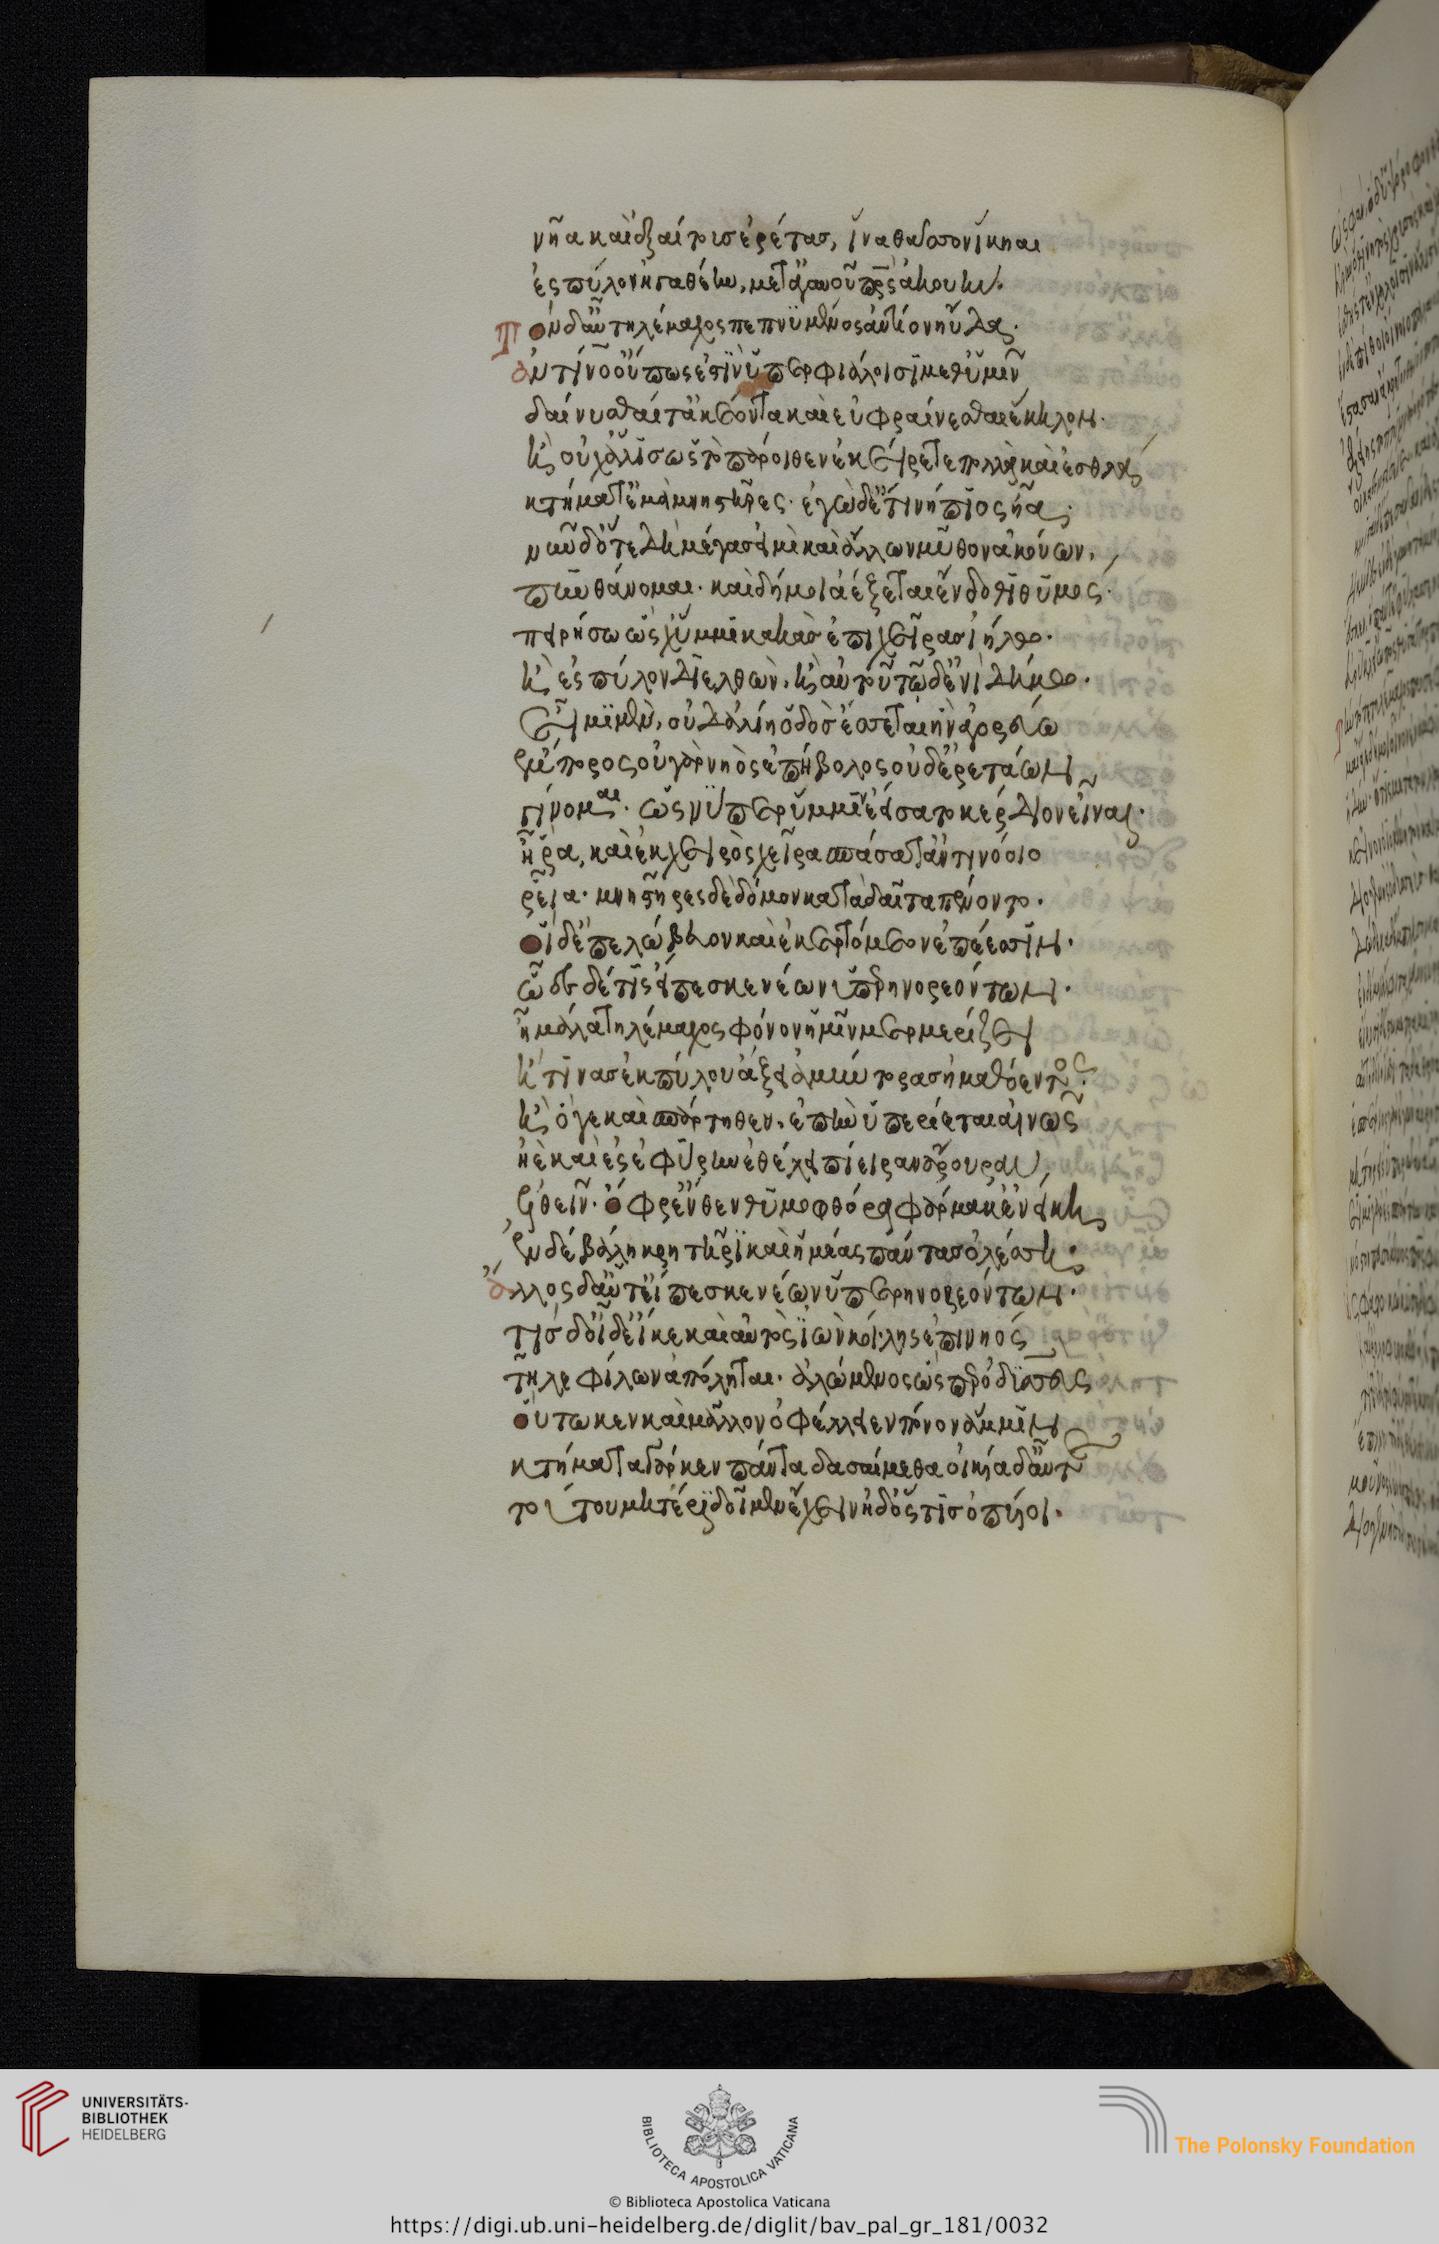 νῆα καὶ ἐξαίτουσ ἐρέτασ, ἵνα θᾶσσον ἵκηαι
ἐς πύλον ἠγαθέην, μετ' ἀγαυοῦ πρς ἀκουήν.
Τὸν δ' αὖ τηλέμαχος πεπνυμένος ἀντίον ηὔδα.
ἀντίνο' οὔπως ἐστὶν ὑπερφιάλοισι μεθ' ὑμῖν
δαίνυσθαί τ' ἀκέοντα καὶ εὐφραίνεσθαι ἕκηλον.
ἢ οὐχ ἅλις ὡς τὸ πάροιθεν ἐκείρετε πολλὰ καὶ ἐσθλὰ
κτήματ' ἐμὰ μνηστῆρες. ἐγὼ δ' ἔτι νήπιος ἦα.
νῦν δ' ὅτε δὴ μέγασ εἰμὶ καὶ ἄλλων μῦθον ἀκούων,
πυνθάνομαι. καὶ δή μοι ἀέξεται ἔνδοθι θυμός.
πειρήσω ὥς κ' ὔμμι κακὰσ ἐπὶ κῆρασ ἰήλω.
ἠὲ ἐς πύλον δ' ἐλθὼν. ἢ αὐτοῦ τῷδ' ἐνὶ δήμω.
εἶμι μὲν, οὐδ' ἁλίη ὁδὸσ ἔσσεται ἣν ἀγορεύω
ἔμπορος οὐ γὰρ νηὸς ἐπήβολος οὐδ' ἐρετάων
γίνομαι. ὥς νύ που ὔμμιν ἐείσατο κέρδιον εἶναι.
ἦ ῥα, καὶ ἐκ χειρὸς χεῖρα σπάσατ' ἀντινόοιο
ῥεῖα. μνηστῆρες δὲ δόμον κατὰ δαῖτα πένοντο.
οἱ δ' ἐπελώβευον καὶ ἐκερτόμεον ἐπέεσσιν.
ὧδε δέ τις εἴπεσκε νέων ὑπερηνορεόντων.
ἦ μάλα τηλέμαχος φόνον ἡμῖν μερμερίζει
ἤ τινασ ἐκ πύλου ἄξει ἀμύντορασ ἠμαθόεντος.
ἢ ὅγε καὶ σπάρτηθεν, ἐπεί νύ περ ἵεται αἰνῶς
ἠὲ καὶ ἐς ἐφύρην ἐθέλει πίειραν ἄρουραν
ἐλθεῖν. ὄφρ' ἔνθεν θυμοφθόρα φάρμακ' ἐνείκη
ἐν δὲ βάλη κρητῆρι καὶ ἡμέας πάντασ ὀλέσση.
ἄλλος δ' αὖτ' εἴπεσκε νέων ὑπερηνορεόντων.
τίσ δ' οἶδ' εἴ κε καὶ αὐτὸς ἰὼν κοίλης ἐπὶ νηὸς
τῆλε φίλων ἀπόληται. ἀλώμενος ὥς περ ὀδυσσεύς
οὕτω κεν καὶ μᾶλλον ὀφέλλειεν πόνον ἄμμιν
κτήματα γάρ κεν πάντα δασαίμεθα οἰκία δ' αὖτε
τούτου μητέρι δοῖμεν ἔχειν ἠδ' ὅς τισ ὀπυίοι.
UNIVERSITÄTS-
BIBLIOTHEK
HEIDELBERG
BIBLIOTECA APOSTOLICA VATICANA
© Biblioteca Apostolica Vaticana
The Polonsky Foundation
https://digi.ub.uni-heidelberg.de/diglit/bav_pal_gr_181/0032